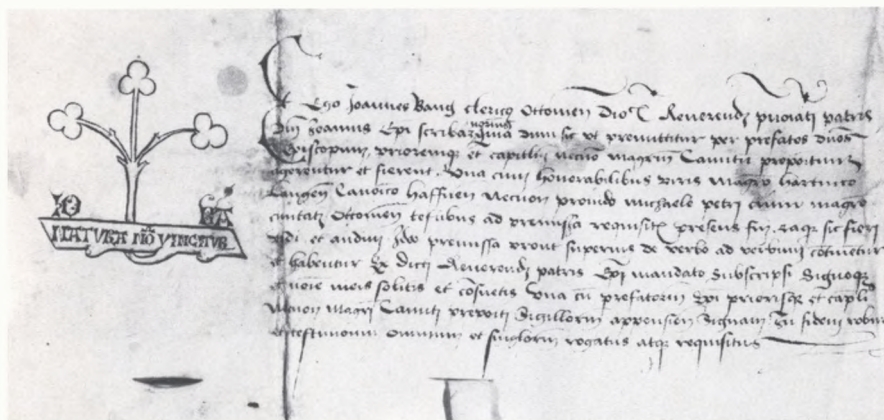 NATVRA NO VINCITVR
Et Ego Joannes Bang clericus Ottonien Dioc Reverendi patris
Dni Joannis Epi scriba dum sic ut premittitur per prefatos duos
Episcopum, prioremque et capitulum necnon magrum Canutum prepositum
agerentur et fierent. Una cum honorabilibus viris magro Hartvico
canonico Haffnen necnon provido Michaele petri civium magro
civitatis Ottonien testibus ad premissa requisitis presens fui, eaque sic fieri
vidi et audivi Ideo premissa prout superius de verbo ad verbum
et habentur Ex dicti Reverendi patris Epi mandato Subscripsi Signoque
et noie meis solitis et consuetis Una cum prefatorum Epi priorisque et capli
Necnon Magri Canuti prepositi Sigillorum appensien Signavi In fidem robur
et testimonium omnium et singulorum rogatus atque requisitus